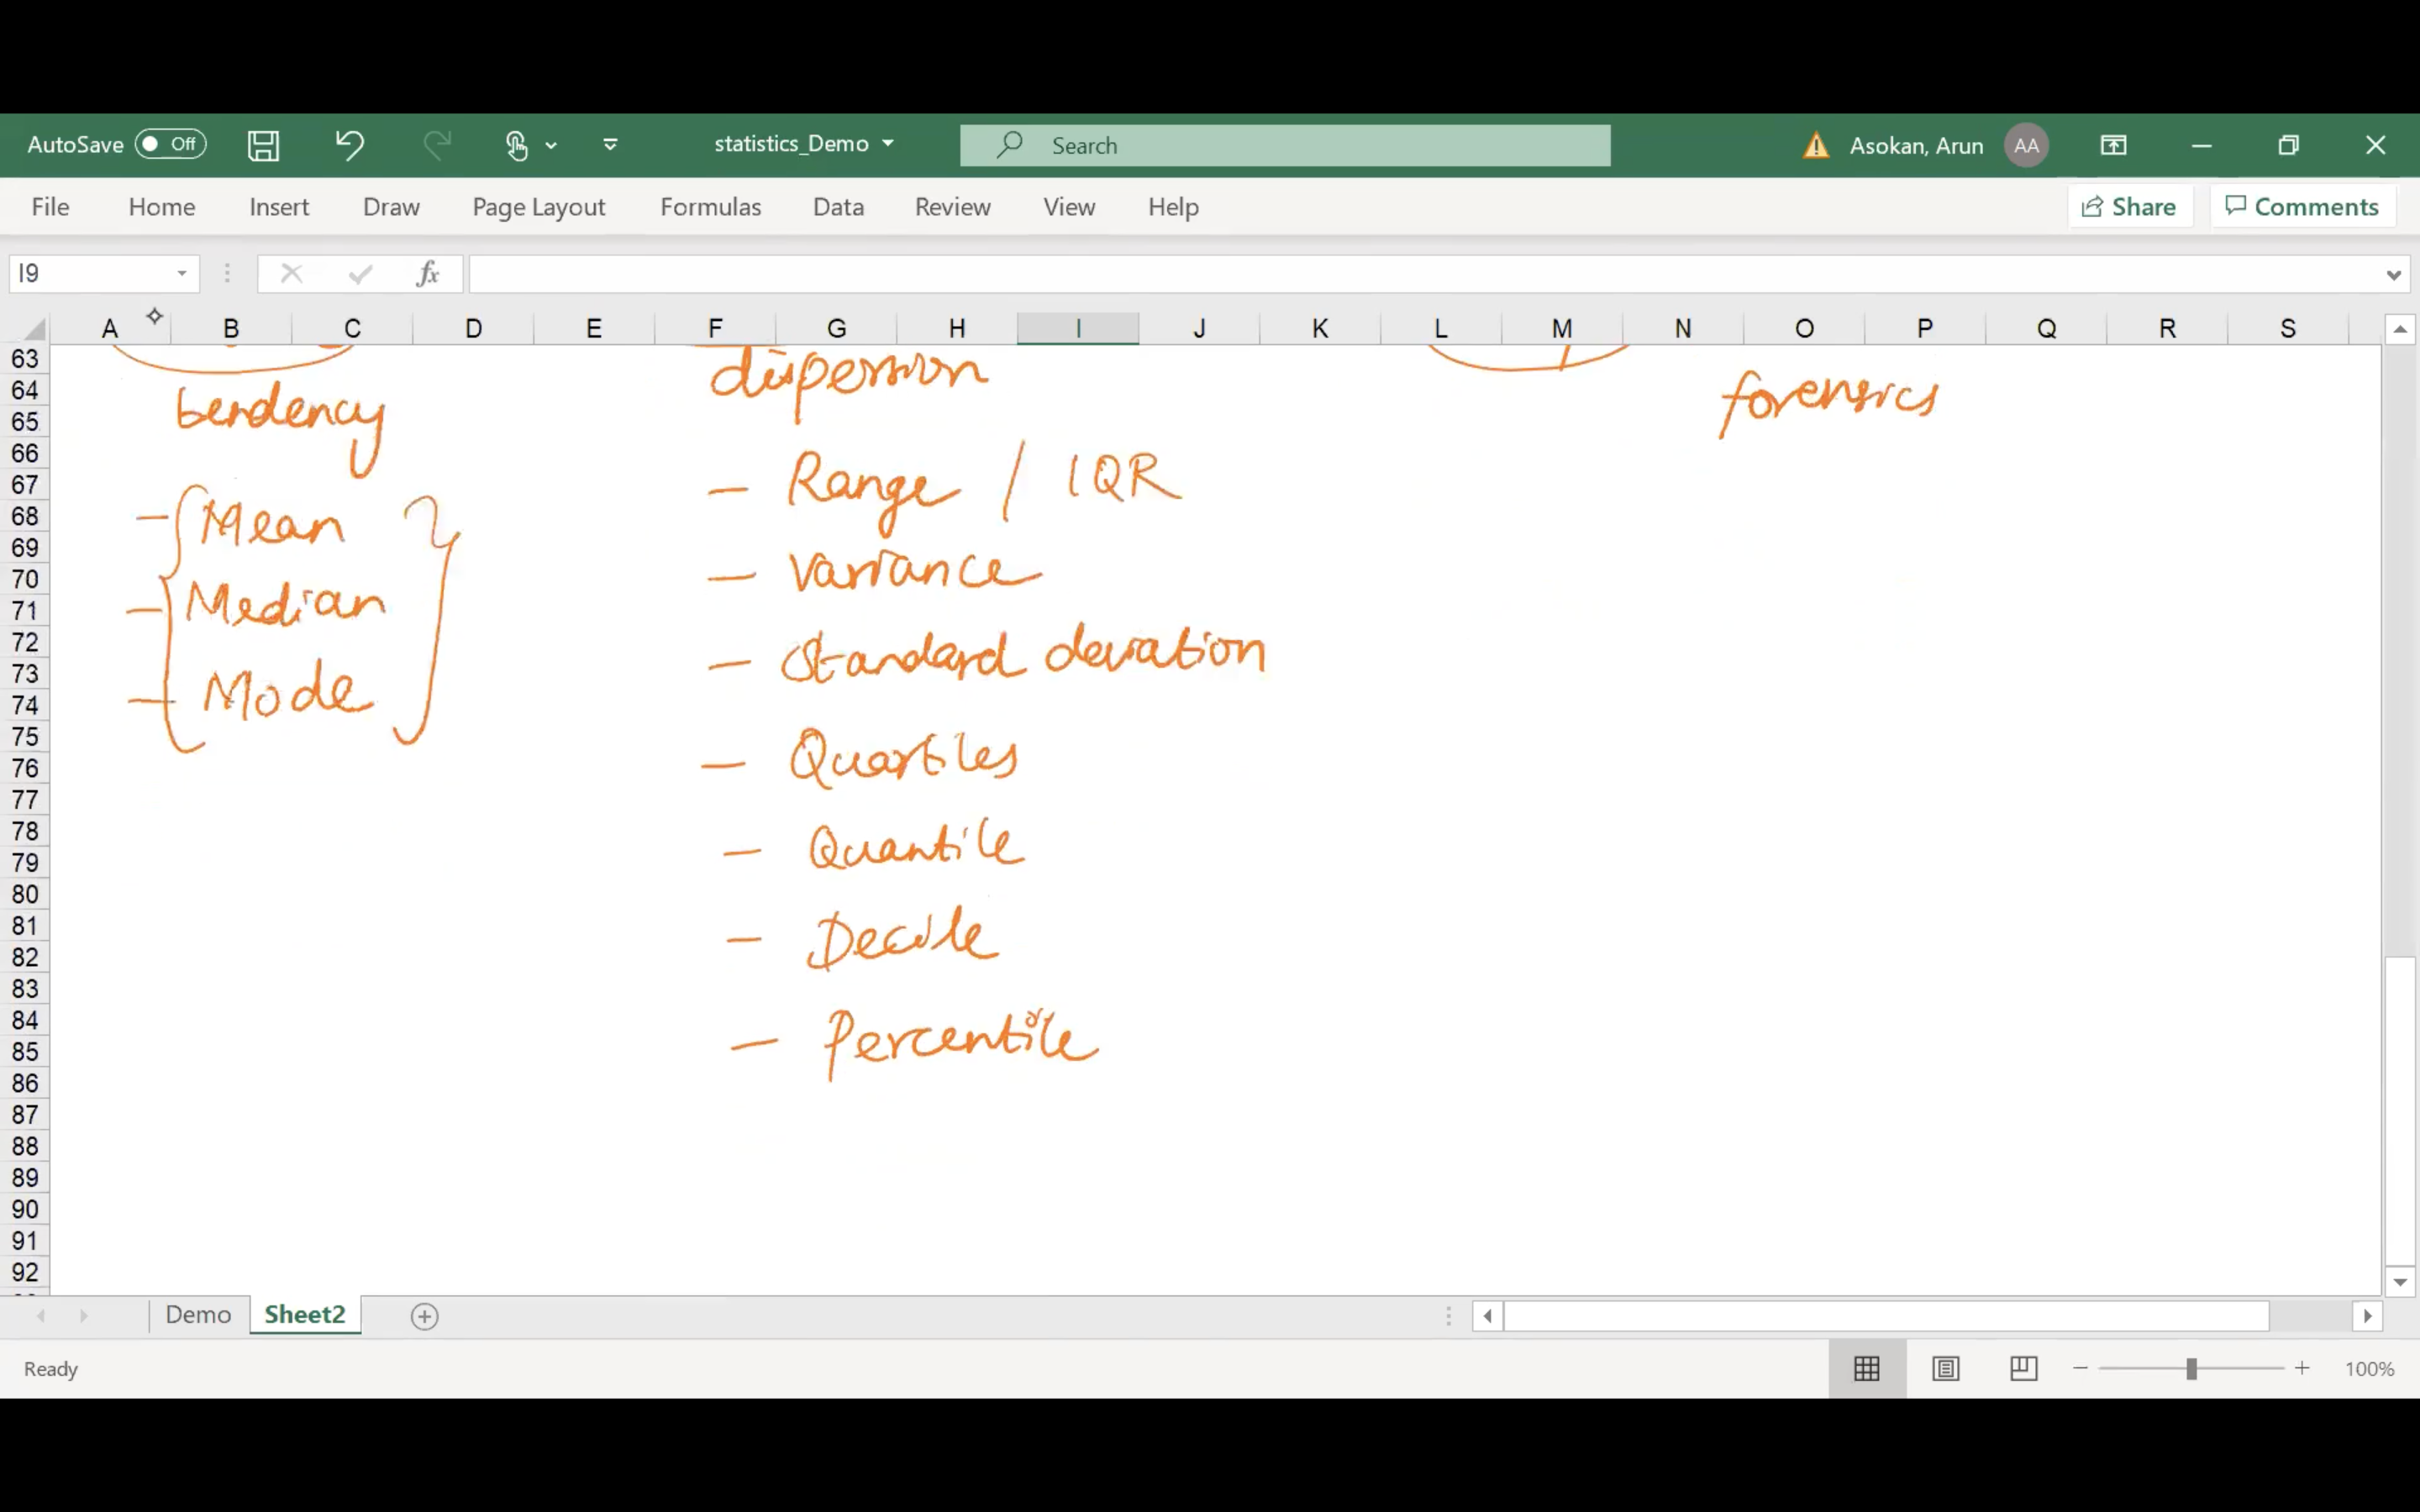 AutoSave Off statistics_Demo Search Asokan, Arun AA
File Home Insert Draw Page Layout Formulas Data Review View Help Share Comments
I9 fx
A B C D E F G H I J K L M N O P Q R S
63
64
65
66
67
68
69
70
71
72
73
74
75
76
77
78
79
80
81
82
83
84
85
86
87
88
89
90
91
92
tendency
- Mean
- Median
- Mode
dispersion
- Range / IQR
- Variance
- Standard deviation
- Quartiles
- Quantile
- Decile
- Percentile
forensics
Demo Sheet2
Ready 100%